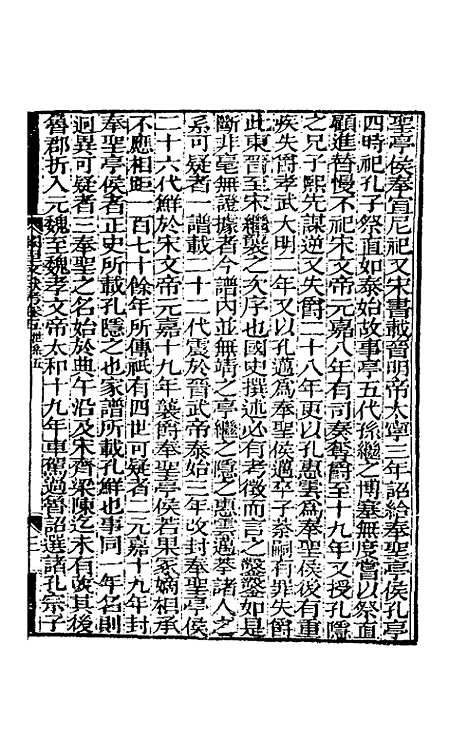 聖亭侯奉宣尼祀又宋書載晉明帝太寧三年詔給奉聖亭侯孔亭
四時祀孔子祭直如泰始故事亭五代孫繼之博塞無度嘗以祭直
顧進替慢不祀宋文帝元嘉八年有司奏奪爵至十九年又授孔隱
之兄子熙先謀逆又失爵二十八年更以孔惠雲為奉聖侯後有重
疾失爵孝武大明二年又以孔邁為奉聖侯邁卒子莽嗣有罪失爵
此東晉至宋繼襲之次序也國史撰述必有考徵而言之鑿鑿如是
斷非毫無證據者今譜內並無靖之亭繼之隱之惠雲邁莽諸人之
系可疑者一譜載二十二代震於晉武帝泰始三年改封奉聖亭侯
二十六代鮮於宋文帝元嘉十九年襲爵奉聖亭侯若果家嫡相承
不應相距一百七十餘年所傳祇有四世可疑者二元嘉十九年封
奉聖亭侯者正史所載孔隱之也家譜所載孔鮮也事同一年名則
迥異可疑者三奉聖之名始於典午沿及宋齊梁陳迄未有改其後
魯郡折入元魏至魏孝文帝太和十九年車駕過魯詔選諸孔宗子